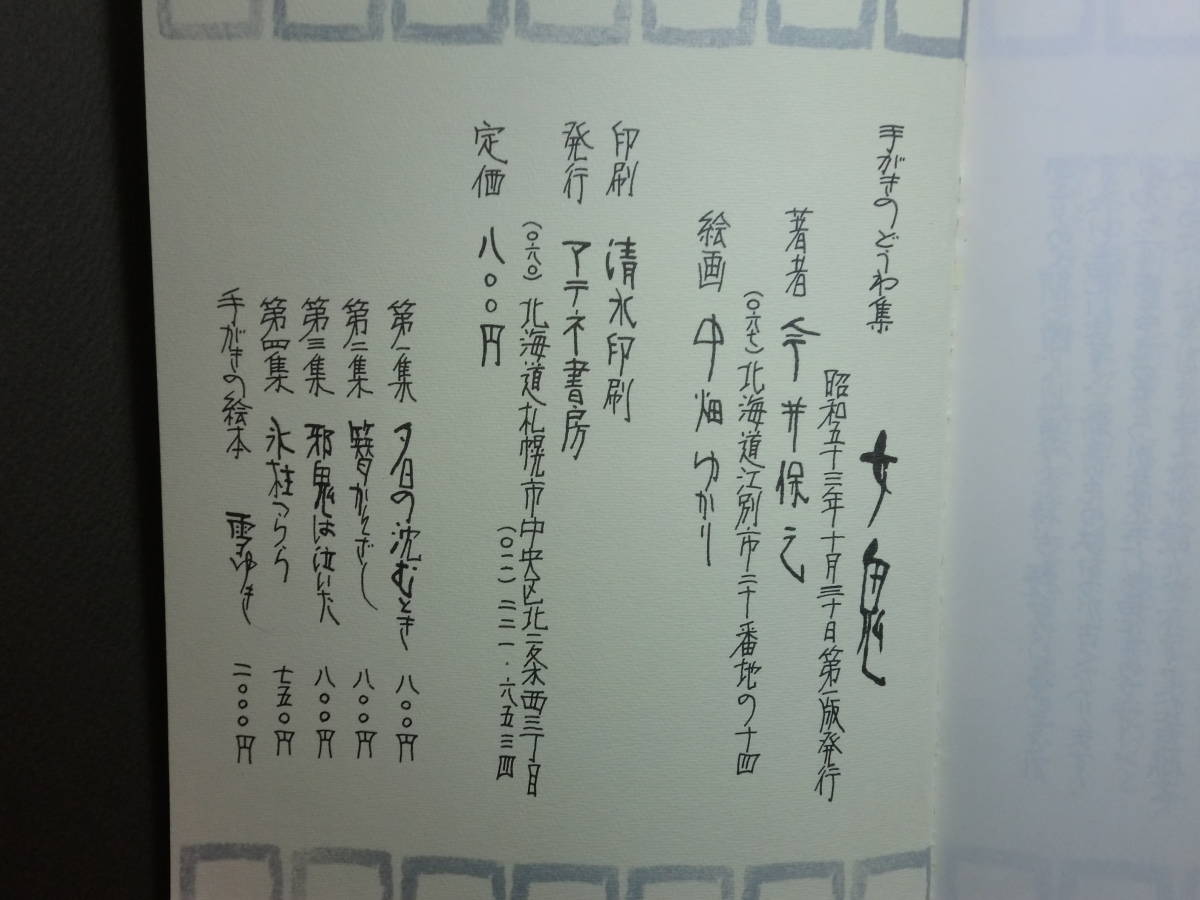 手がきのどうわ集
女鬼
昭和五十三年十月三十日第一版発行
著者 今井保之
(〇六七)北海道江別市二十番地の十四
絵画 中畑ゆかり
印刷 清水印刷
発行 アテネ書房
(〇六〇)北海道札幌市中央区北二条西三丁目
(〇一一)二二一・六五三四
定価 八〇〇円
第一集 夕日の沈むとき 八〇〇円
第二集 簪かんざし 八〇〇円
第三集 邪鬼は泣いた 八〇〇円
第四集 氷柱つらら 七五〇円
手がきの絵本 雪ゆき 二〇〇〇円